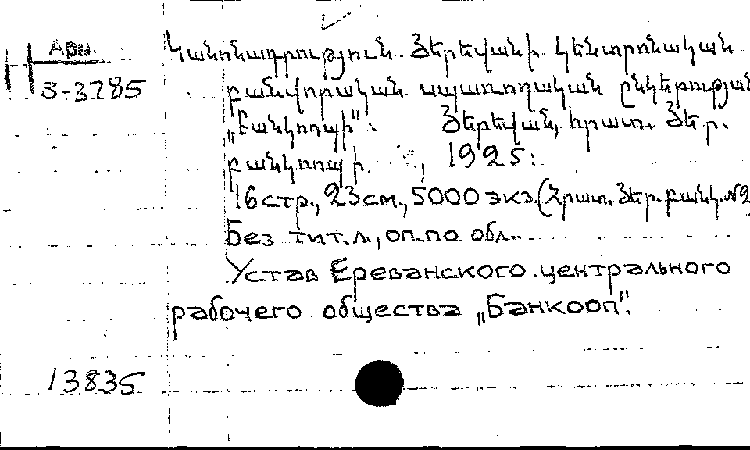 Арм.
3-3785
Կանոնադրություն Յերեվանի կենտրոնական
բանվորական սպառողական ընկերության
„Բանկոոպի":  Յերեվան, հրատ. Յեր.
բանկոոպի, 1925:
16 стр., 23 см., 5000 экз. (Հրատ. Յեր. բանկ. №2
Без тит. л., оп. по обл.
Устав Ереванского центрального
рабочего общества „Банкооп".
13835